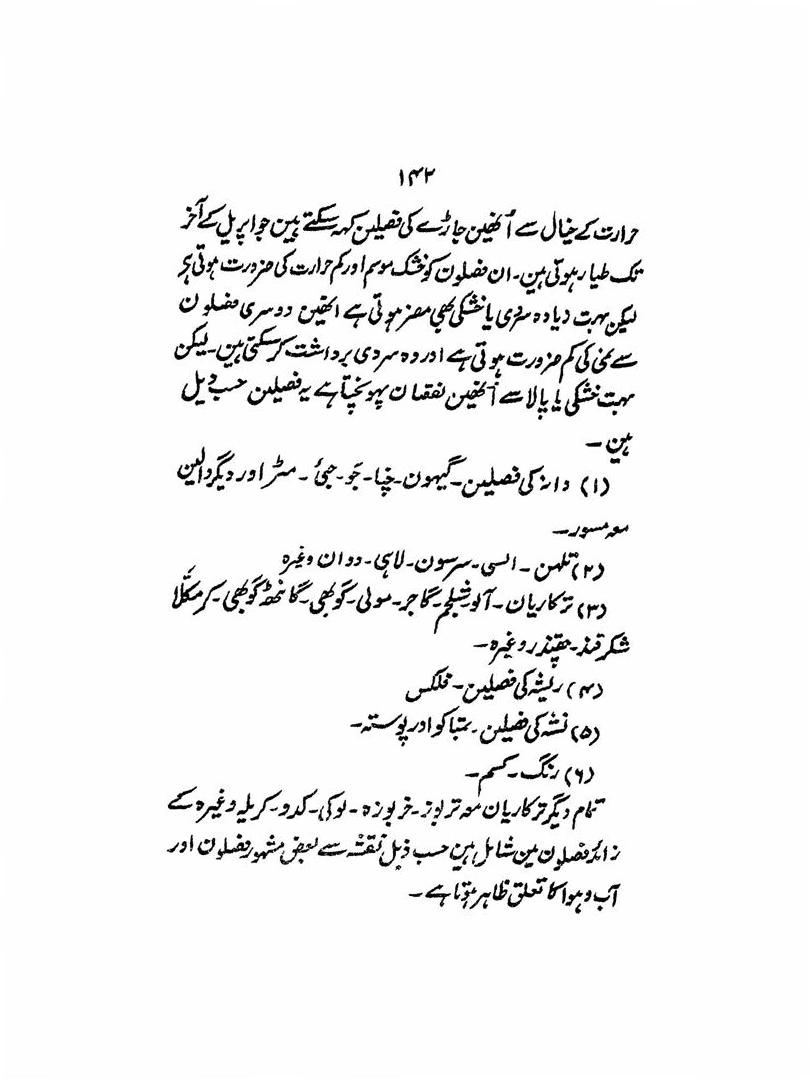 ۱۴۲
حرارت کے خیال سے اُنھین جاڑے کی فصیلن کہہ سکتے ہین جو اپریل کے آخر
تک طیار ہوتی ہین۔ ان فصلون کو خشک موسم اور کم حرارت کی ضرورت ہوتی ہے
لیکن بہت زیادہ سردی یا خشکی بھی مضر ہوتی ہے انھین دوسری فصلون
سے نمی کی کم ضرورت ہوتی ہے اور وہ سردی برداشت کر سکتی ہین۔ لیکن
بہت خشکی یا پالا سے اُنھین نقصان پہونچتا ہے یہ فصیلن حسب ذیل
ہین ۔
(۱) دانہ کی فصیلن۔ گیہون۔ چنا۔ جَو۔ جئی ۔ مٹر اور دیگر دالین
معہ مسور۔
(۲) تلہن ۔ السی۔ سرسون۔ لاہی۔ دوان وغیرہ
(۳) ترکاریان۔ آلو۔ شلجم۔ گاجر۔ مولی۔ گوبھی۔ گانٹھ گوبھی۔ کرمکلّا
شکرقند۔ چقندر وغیرہ۔
(۴) ریشہ کی فصیلن۔ فلکس
(۵) نشہ کی فصیلن۔ تمباکو اور پوستہ۔
(۶) رنگ۔ کسم۔
تمام دیگر ترکاریان معہ تربوز۔ خربوزہ ۔ لوکی۔ کدو۔ کریلہ وغیرہ کے
زائد فصلون مین شامل ہین حسب ذیل نقشہ سے بعض مشہور فصلون اور
آب و ہوا کا تعلق ظاہر ہوتا ہے۔